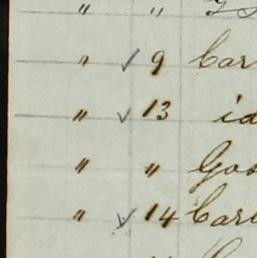 " "
" ✓ 9 Car
" ✓ 13 id
" " Gos
" ✓ 14 Car